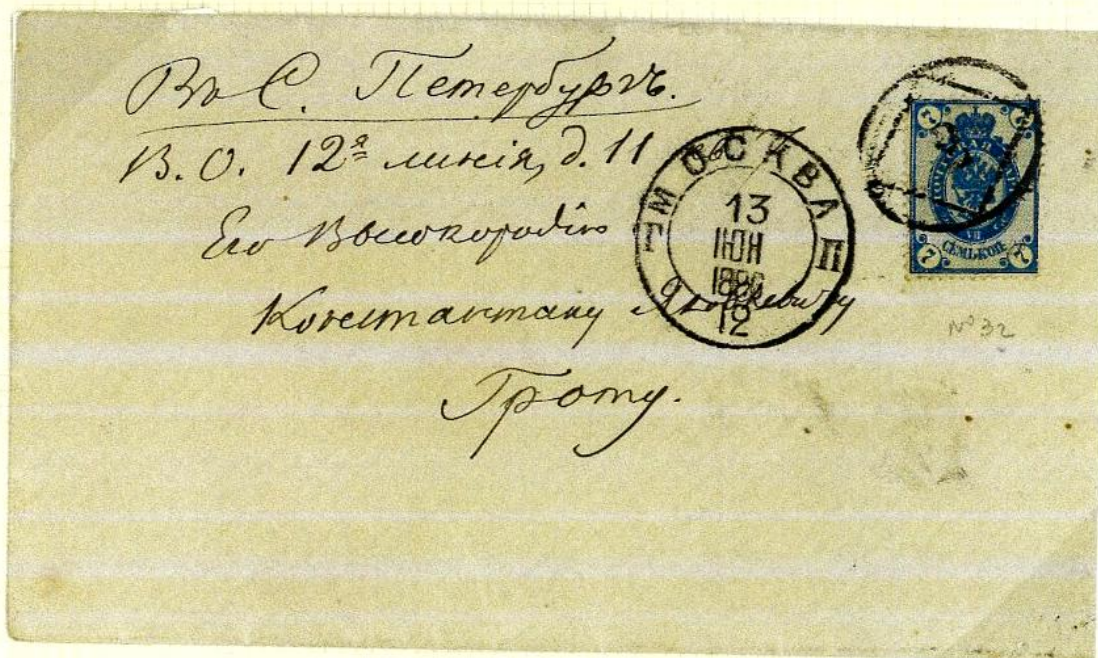 Въ С. Петербургъ.
В. О. 12я линія, д. 11
Его Высокородію
Константину Яковлевичу
Гроту.
МОСКВА
13
ІЮН
12
П
7
7
7
СЕМЬ КОП
№ 32